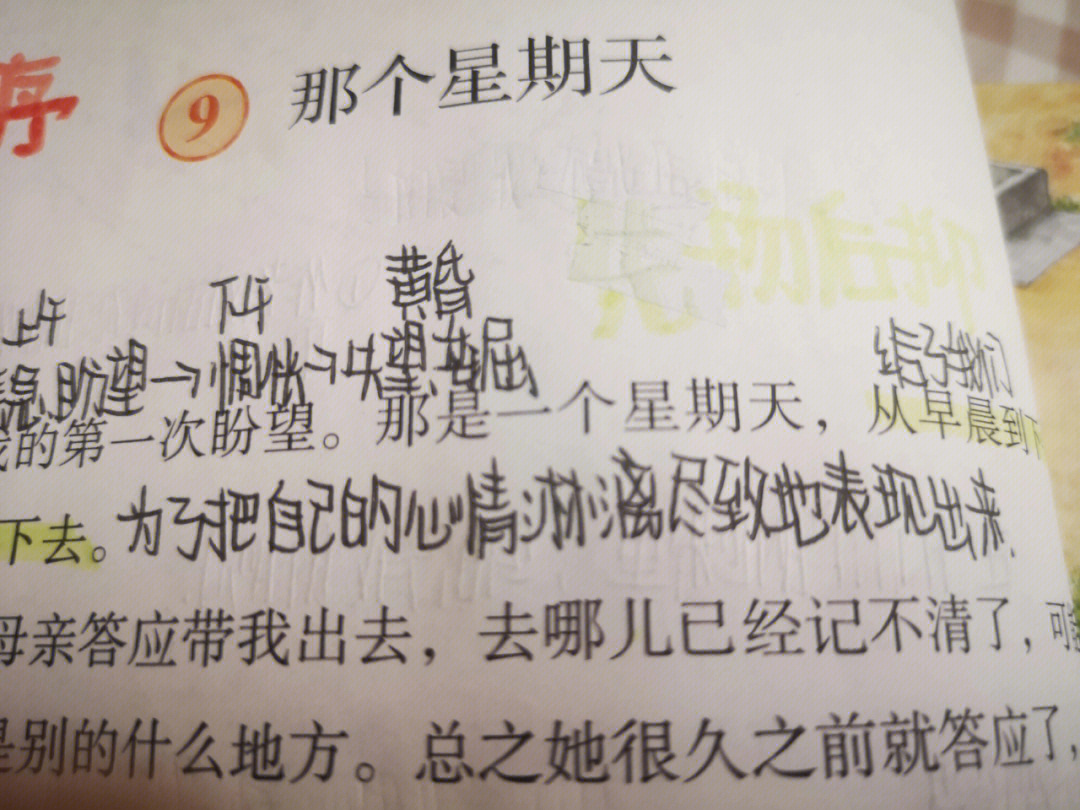 序 9 那个星期天
先扬后抑
上午 下午 黄昏
急盼望→惆怅→失望、委屈 给了我们
我的第一次盼望。那是一个星期天，从早晨到下
下去。为了把自己的心情淋漓尽致地表现出来.
母亲答应带我出去，去哪儿已经记不清了，可能
是别的什么地方。总之她很久之前就答应了，